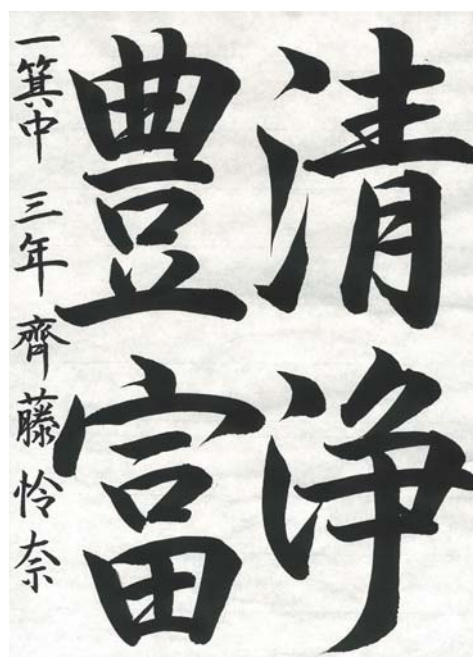 清浄
豊富
一箕中 三年 齊藤怜奈